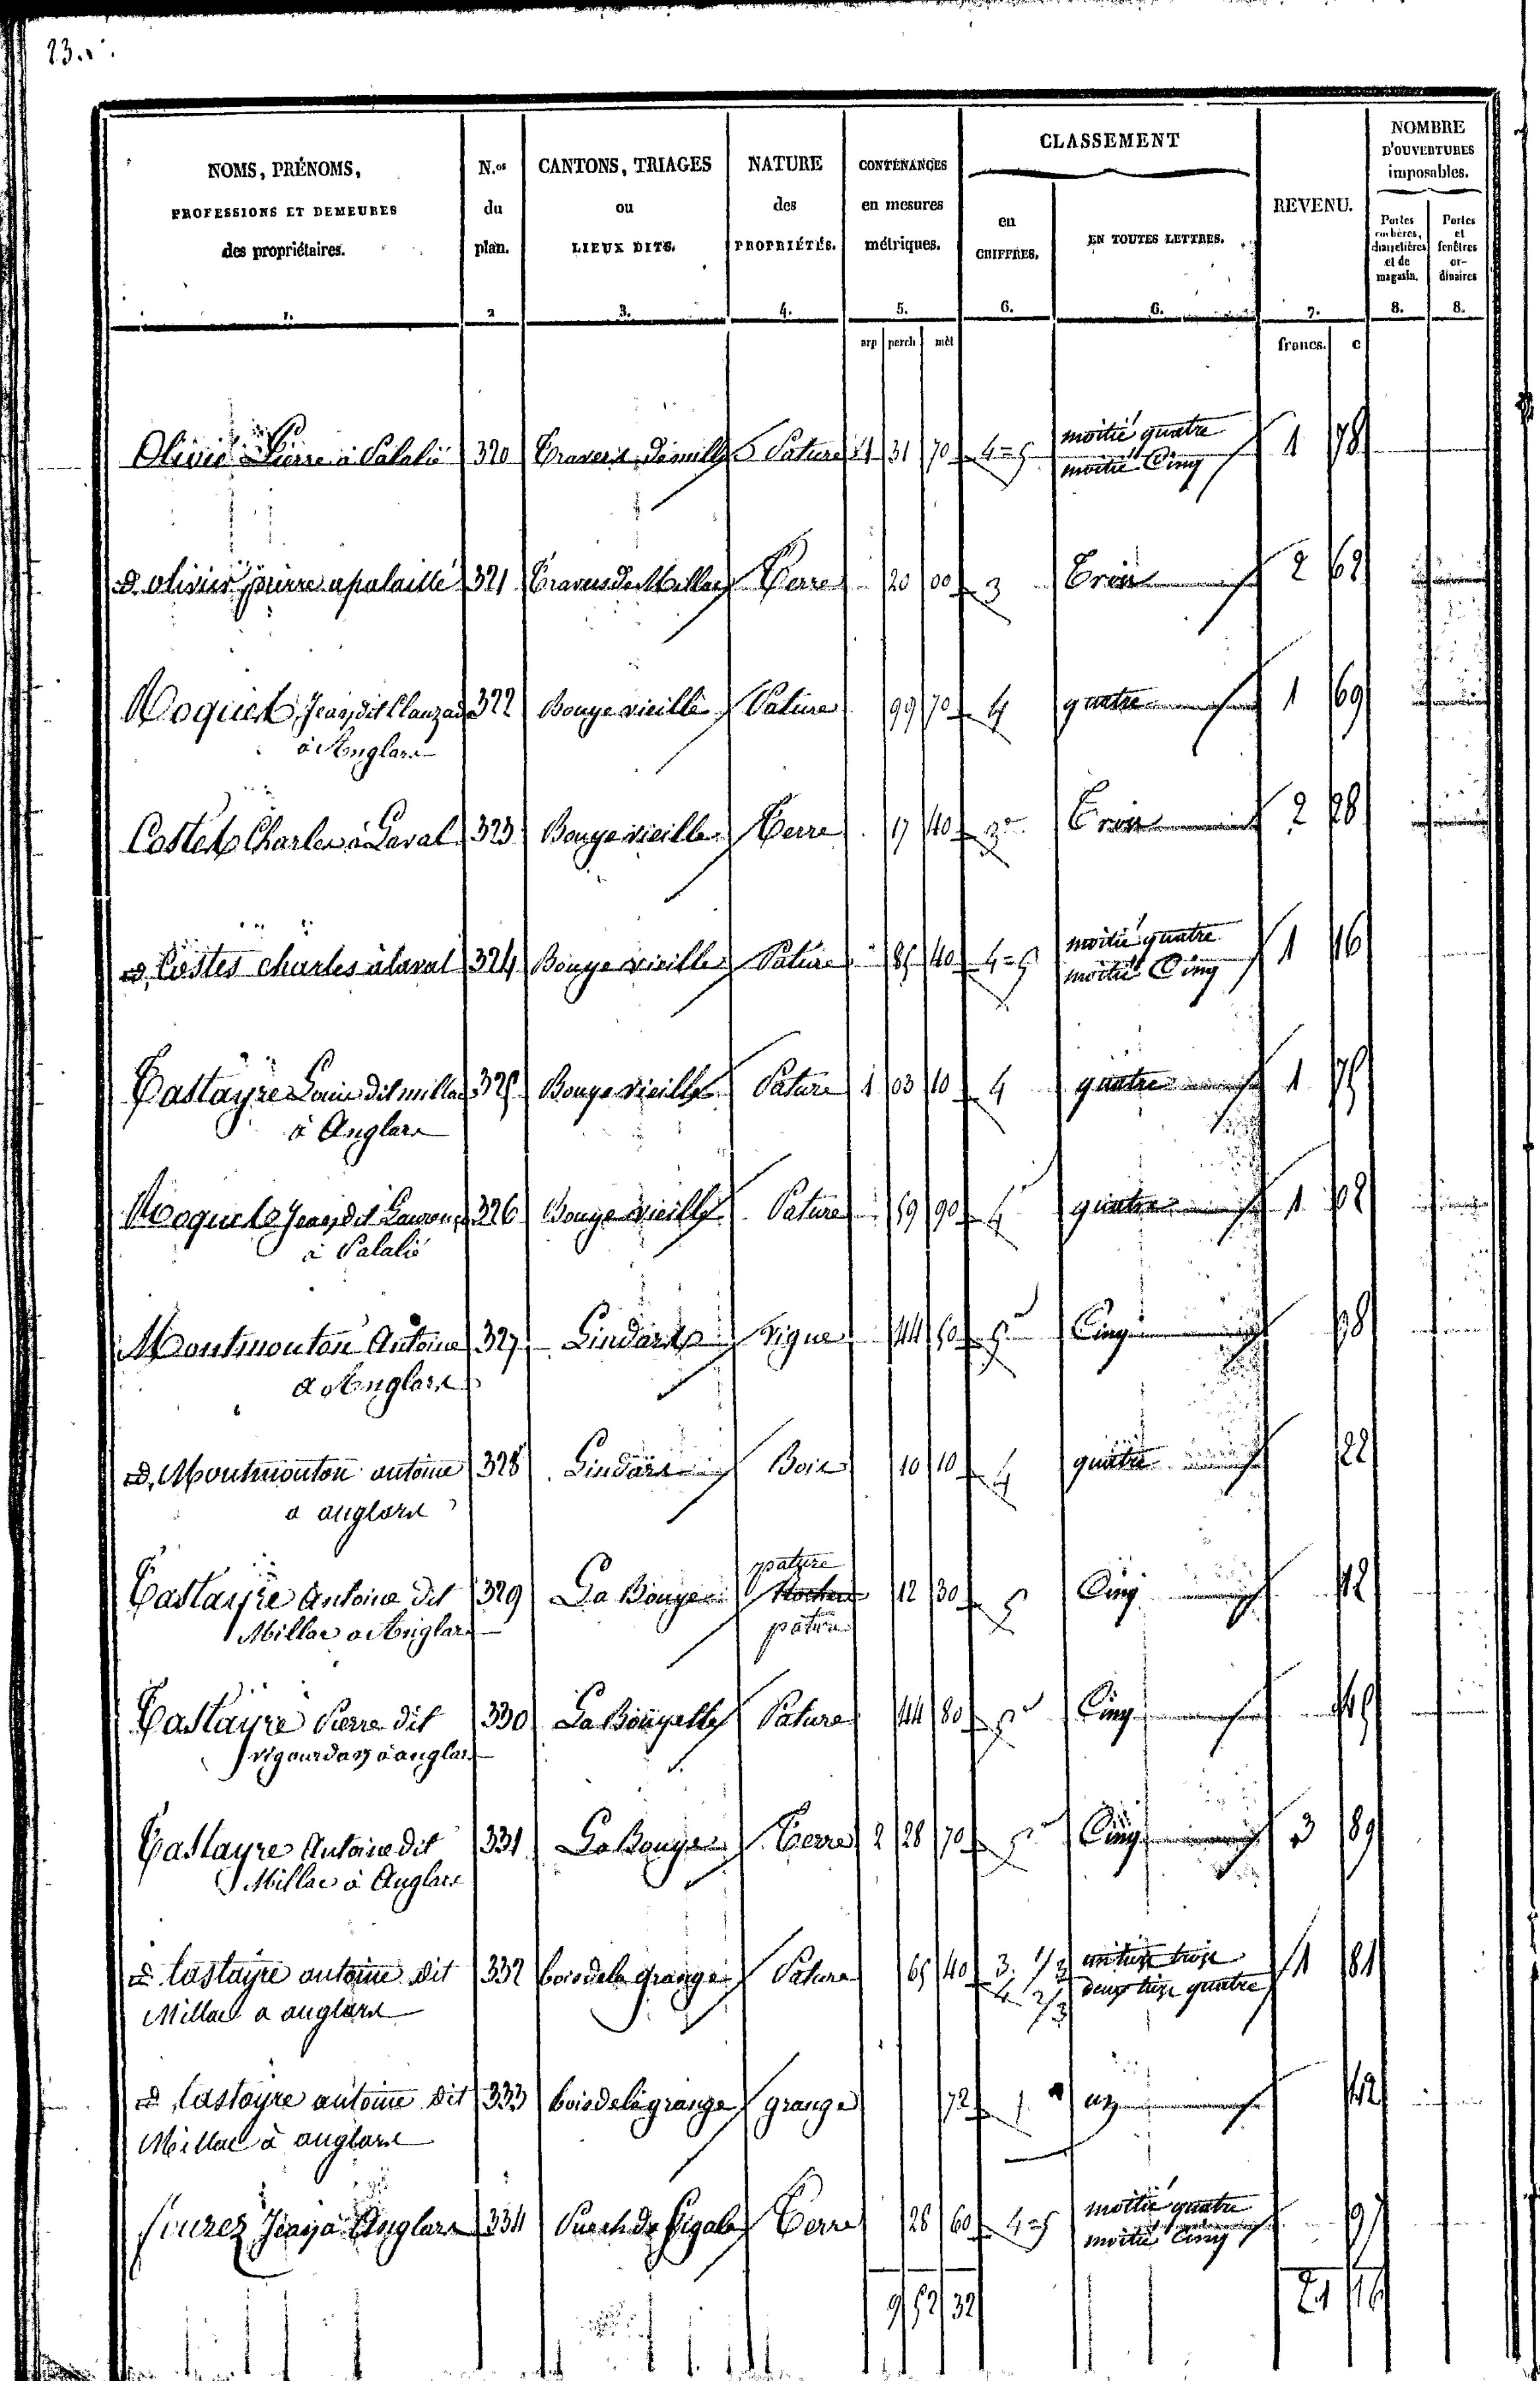 23.
NOMS, PRÉNOMS, PROFESSIONS ET DEMEURES des propriétaires. 1.
N.os du plan. 2
CANTONS, TRIAGES ou LIEUX DITS. 3.
NATURE des PROPRIÉTÉS. 4.
CONTENANCES en mesures métriques. 5.
CLASSEMENT
en CHIFFRES. 6.
EN TOUTES LETTRES. 6.
REVENU. 7.
NOMBRE D'OUVERTURES imposables.
Portes cochères, charretières et de magasin. 8.
Portes et fenêtres or-dinaires 8.
arp perch mèt francs. c
Olivié Pierre à Palalié 320 Pature 1 31 70 4=5 moitié quatre 1 78
moitié Cinq
d. olivier pierre a palaillé 321 Travers de Millac Terre 20 00 3 Trois 2 62
Jean dit Clauzade 322 Bouye vieille Pature 99 70 4 quatre 1 69
à Anglars
Costes Charles à Laval 323 Bouye vieille Terre 17 40 3 Trois 2 28
d. Costes charles à laval 324 Bouye vieille Pature 85 40 4=5 moitié quatre 1 16
moitié Cinq
Tastayre Louis dit millac 325 Bouye vieille Pature 1 03 10 4 quatre 1 75
à Anglars
Jean dit 326 Bouye vieille Pature 59 90 4 quatre 1 02
à Palalié
Montmouton Antoine 327 Lindars vigne 44 60 5 Cinq 98
a Anglars
d. Montmouton antoine 328 Lindars Bois 10 10 4 quatre 22
a anglars
pature
Tastayre Antoine dit 329 La Bouye Rocher 12 30 5 Cinq 12
Millac a Anglars pature
Tastayre Pierre dit 330 La Bouyette Pature 44 80 5 Cinq 45
à anglars
Tastayre Antoine dit 331 La Bouye Terre 2 28 70 5 Cinq 3 89
Millac à Anglars
d. tastayre antoine dit 332 bois de la grange Pature 65 40 3. 1/3 un tiers trois 1 81
Millac a anglars 4 2/3 deux tiers quatre
d. tastayre antoine dit 333 bois de la grange grange 72 1 un 42
Millac à anglars
Jean à Anglars 334 Puech de Terre 28 60 4=5 moitié quatre 97
moitié Cinq
9 52 32 21 16